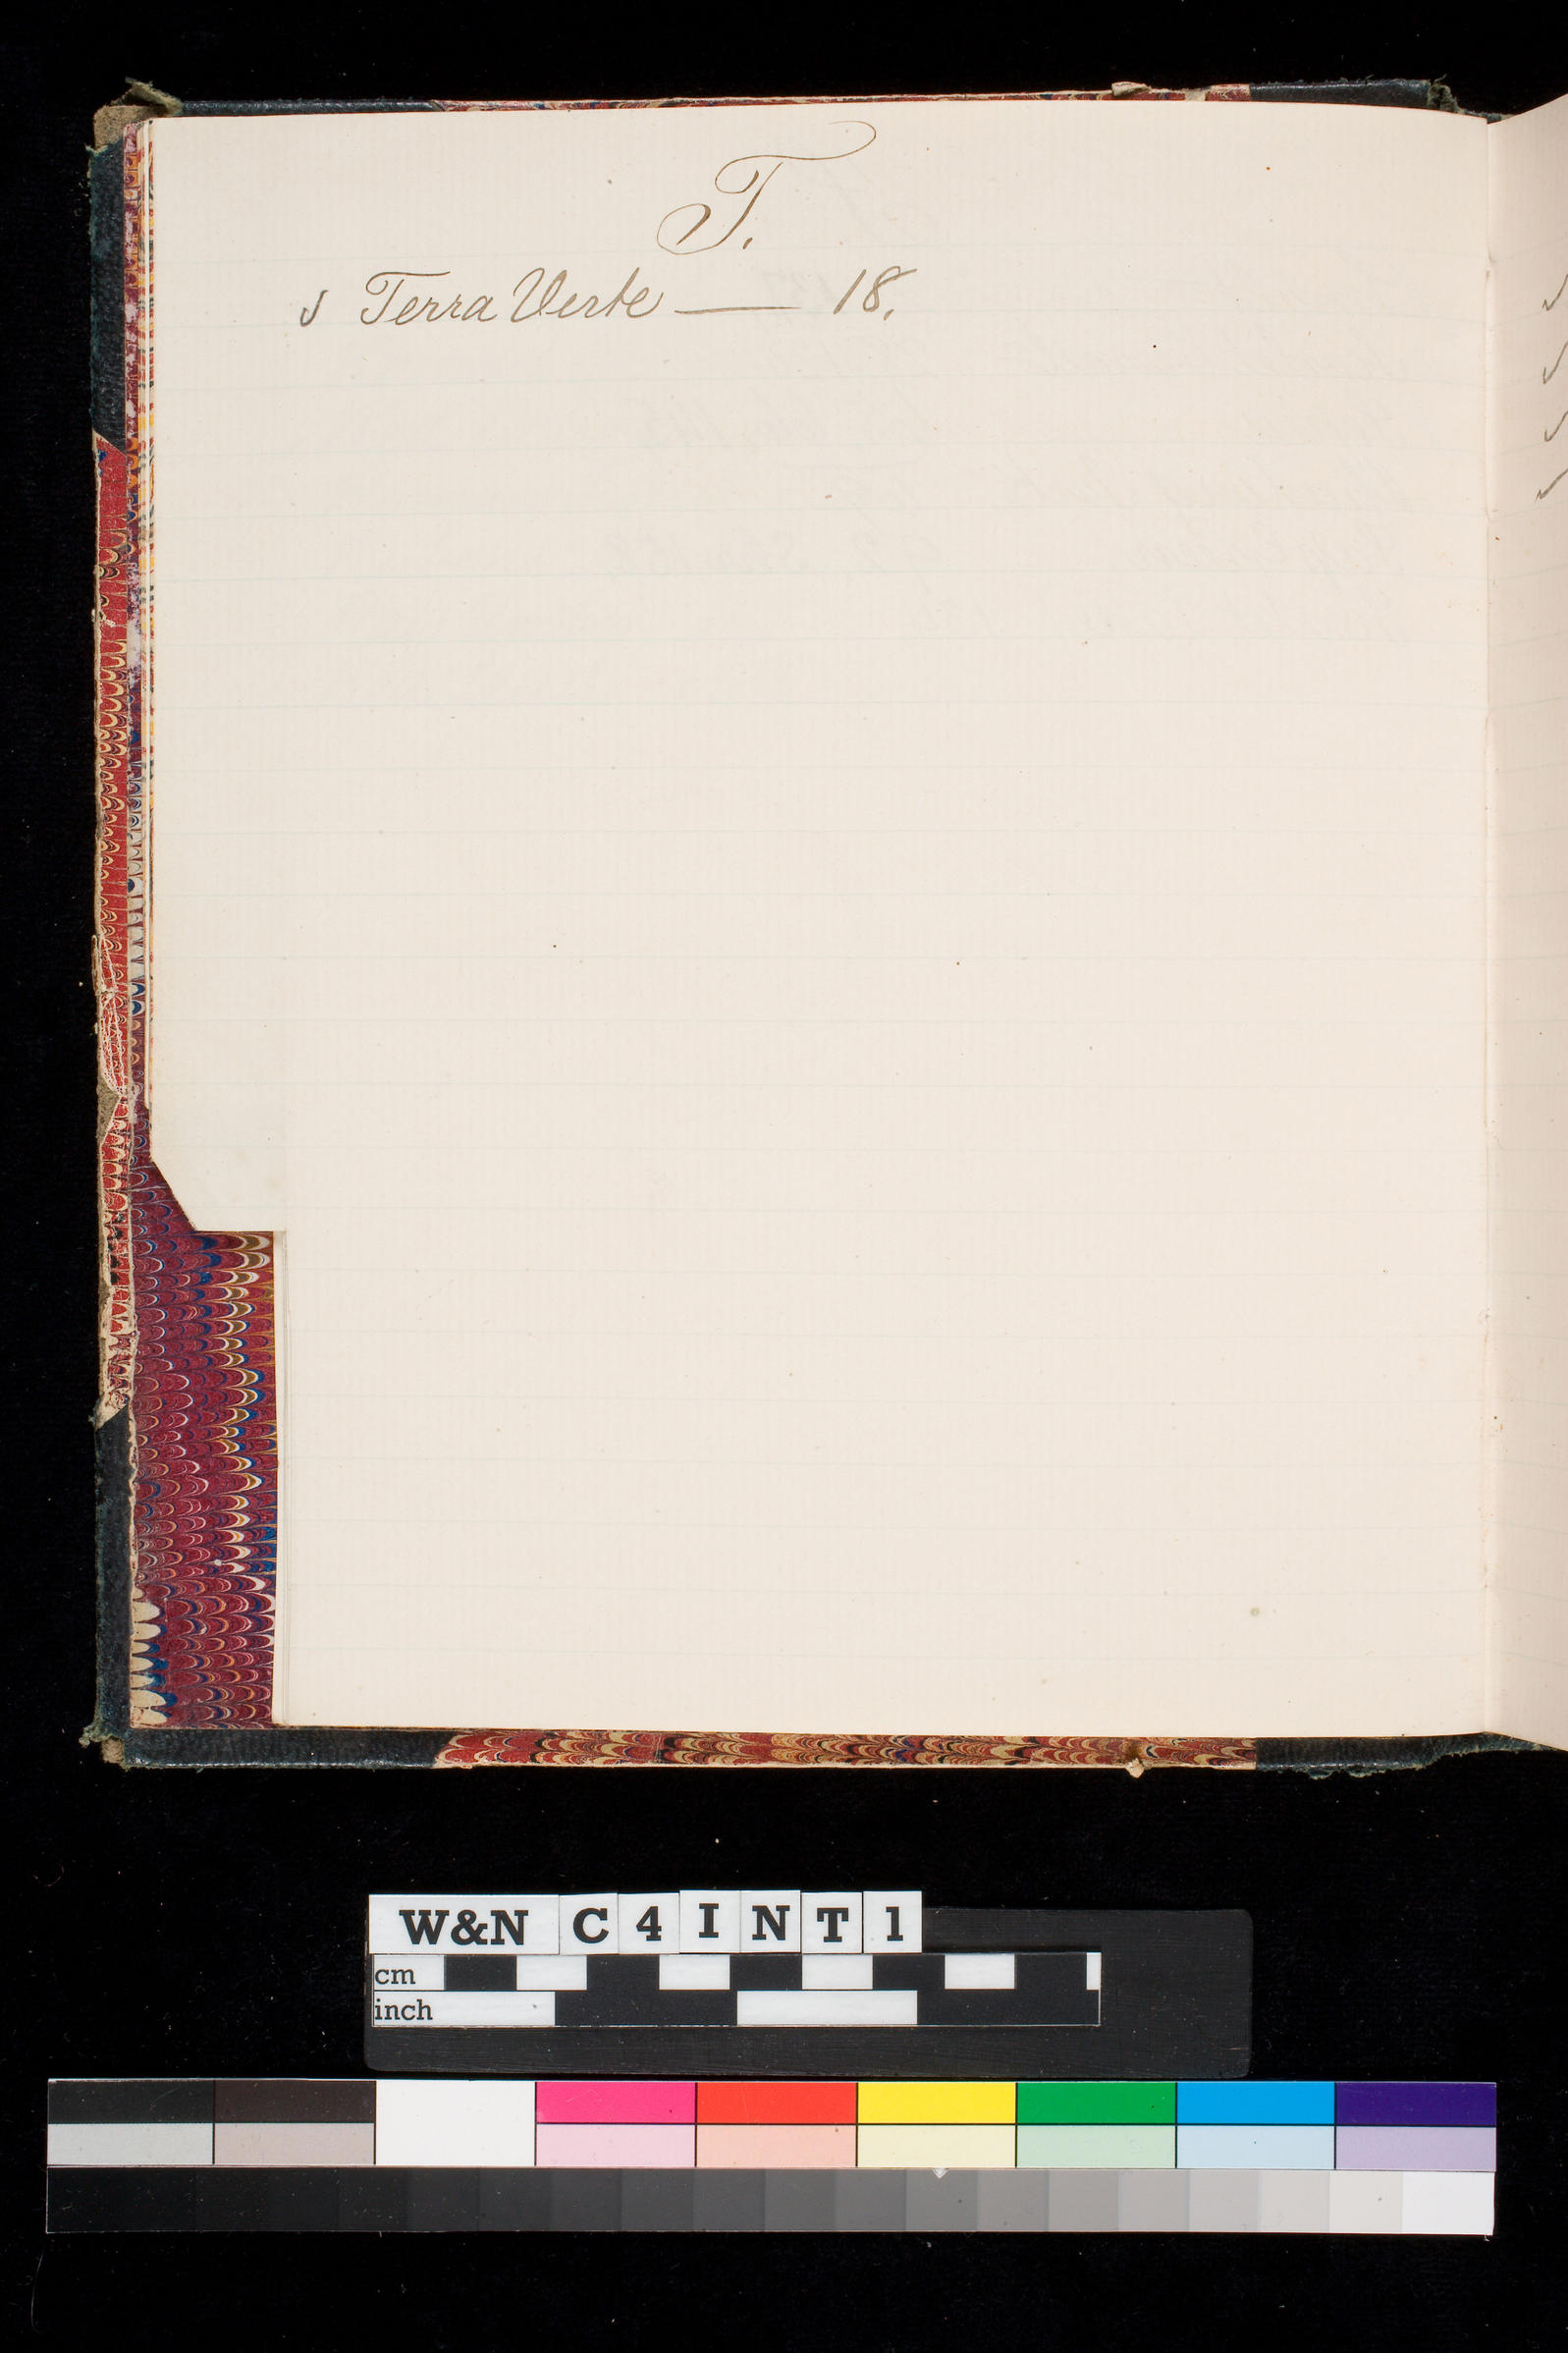 T.
✓ Terra Verte — 18.
W&N C 4 I N T 1
cm
inch